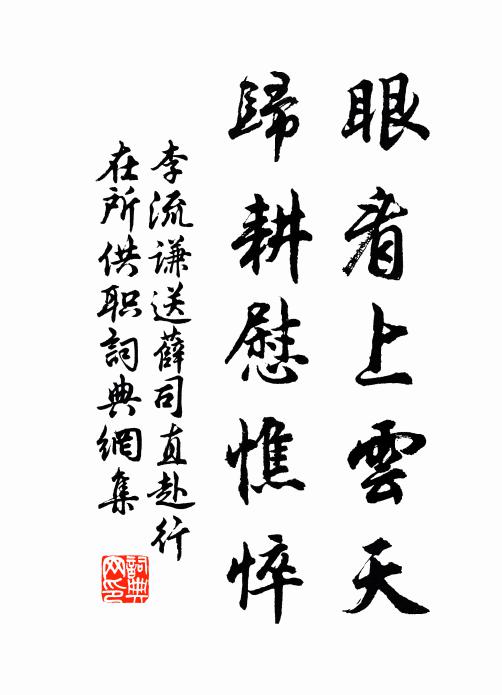 眼看上雲天
歸耕慰憔悴
李流谦送薛司直赴行
在所供职詞典網集
詞典
网印